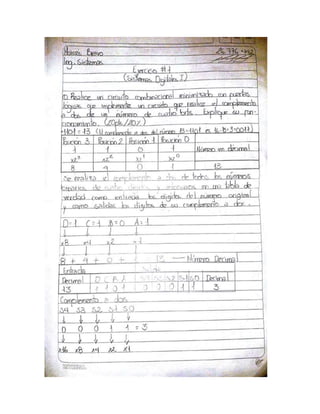 Moises Bravo 26.776.492
Ing. Sistemas
Ejercicio #1
(Sistemas Digitales I)
1) Realice un circuito combinacional minimizado con puertas
logicas que implemente un circuito que realice el complemento
a dos de un número de cuatro bits. Explique su fun-
cionamiento. (20pts/20%)
1101 = 13 (El complemento a dos del número B=1101 es (C-B=3=0011)
Posición 3 Posición 2 Posición 1 Posición 0
1 1 0 1 Número en decimal
x2³ x2² x2¹ x2⁰
8 4 0 1 13
Se realiza el complemento a dos de todos los números
binarios de cuatro en una tabla de
verdad como entrada los digitos del número original
y como salidas los digitos de su complemento a dos.
D=1 C=1 B=0 A=1
↓ ↓ ↓ ↓
x8 x4 x2 x1
↓ ↓ ↓ ↓
8 + 4 + 0 + 1 13 — Número Decimal
Entrada Salida
Decimal D C B A S4 S3 S2 S1 S0 Decimal
13 1 1 0 1 0 0 0 1 1 3
Complemento a dos
S4 S3 S2 S1 S0
↓ ↓ ↓ ↓ ↓
0 0 0 1 1 = 3
↓ ↓ ↓ ↓ ↓
x16 x8 x4 x2 x1